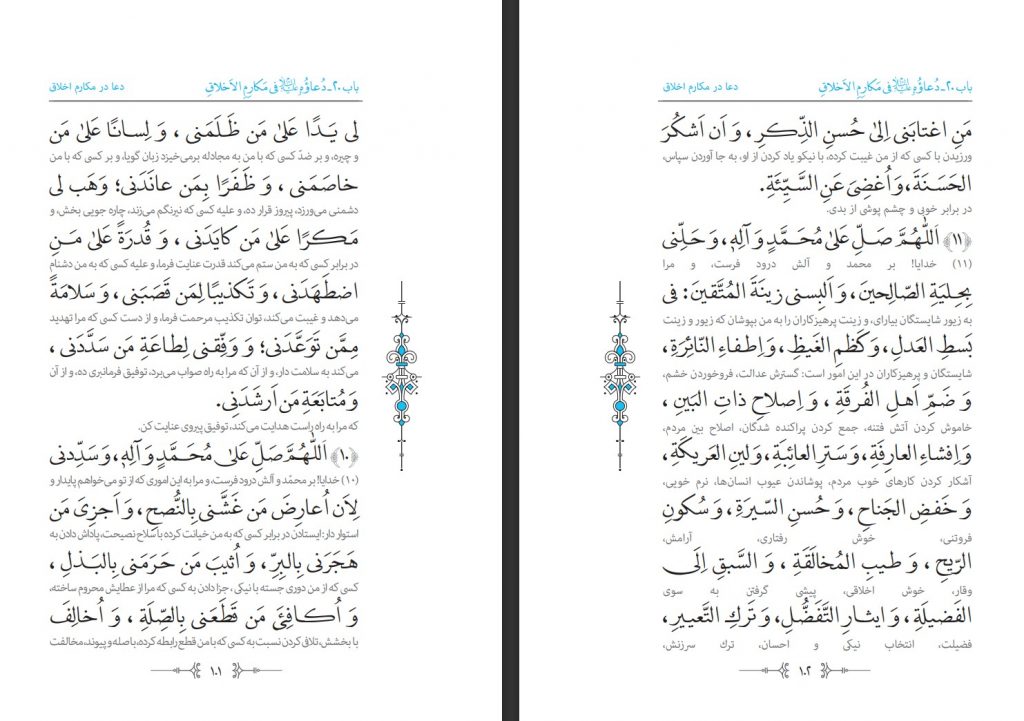 باب ۲۰ـ دُعاؤُهُ علیه‌السلام فی مَکارِمِ الاَخلاقِ
دعا در مکارم اخلاق
لی یَدًا عَلیٰ مَن ظَلَمَنی ، وَ لِسانًا عَلیٰ مَن
و چیره، و بر ضدّ کسی که با من به مجادله برمی‌خیزد زبان گویا، و بر کسی که با من
خاصَمَنی ، وَ ظَفَرًا بِمَن عانَدَنی؛ وَهَب لی
دشمنی می‌ورزد، پیروز قرار ده، و علیه کسی که نیرنگم می‌زند، چاره جویی بخش، و
مَکرًا عَلیٰ مَن کایَدَنی ، وَ قُدرَةً عَلیٰ مَنِ
در برابر کسی که به من ستم می‌کند قدرت عنایت فرما، و علیه کسی که به من دشنام
اضطَهَدَنی ، وَ تَکذیبًا لِمَن قَصَبَنی ، وَ سَلامَةً
می‌دهد و غیبت می‌کند، توان تکذیب مرحمت فرما، و از دست کسی که مرا تهدید
مِمَّن تَوَعَّدَنی؛ وَ وَفِّقنی لِطاعَةِ مَن سَدَّدَنی ،
می‌کند به سلامت دار، و از آن که مرا به راه صواب می‌برد، توفیق فرمانبری ده، و از آن
وَ مُتابَعَةِ مَن اَرشَدَنی.
که مرا به راه راست هدایت می‌کند، توفیق پیروی عنایت کن.
﴿۱۰﴾ اَللّٰهُمَّ صَلِّ عَلیٰ مُحَمَّدٍ وَ آلِهِ، وَ سَدِّدنی
(۱۰) خدایا! بر محمّد و آلش درود فرست، و مرا به این اموری که از تو می‌خواهم پایدار و
لِاَن اُعارِضَ مَن غَشَّنی بِالنُّصحِ ، وَ اَجزِیَ مَن
استوار دار: ایستادن در برابر کسی که به من خیانت کرده با سلاح نصیحت، پاداش دادن به
هَجَرَنی بِالبِرِّ ، وَ اُثیبَ مَن حَرَمَنی بِالبَذلِ ،
کسی که از من دوری جسته با نیکی ، جزا دادن به کسی که مرا از عطایش محروم ساخته،
وَ اُکافِئَ مَن قَطَعَنی بِالصِّلَةِ ، وَ اُخالِفَ
با بخشش، تلافی کردن نسبت به کسی که با من قطع رابطه کرده، با صله و پیوند، مخالفت
۱۰۱
باب ۲۰ـ دُعاؤُهُ علیه‌السلام فی مَکارِمِ الاَخلاقِ
دعا در مکارم اخلاق
مَنِ اغتابَنی اِلیٰ حُسنِ الذِّکرِ ، وَ اَن اَشکُرَ
ورزیدن با کسی که از من غیبت کرده، با نیکو یاد کردن از او، به جا آوردن سپاس،
الحَسَنَةَ، وَ اُغضِیَ عَنِ السَّیِّئَةِ.
در برابر خوبی و چشم پوشی از بدی.
﴿۱۱﴾ اَللّٰهُمَّ صَلِّ عَلیٰ مُحَمَّدٍ وَ آلِهِ، وَ حَلِّنی
(۱۱) خدایا! بر محمد و آلش درود فرست، و مرا
بِحِلیَةِ الصّالِحینَ، وَ اَلبِسنی زینَةَ المُتَّقینَ: فی
به زیور شایستگان بیارای، و زینت پرهیزکاران را به من بپوشان که زیور و زینت
بَسطِ العَدلِ، وَ کَظمِ الغَیظِ ، وَ اِطفاءِ النّائِرَةِ،
شایستگان و پرهیزکاران در این امور است: گسترش عدالت، فروخوردن خشم،
وَ ضَمِّ اَهلِ الفُرقَةِ ، وَ اِصلاحِ ذاتِ البَینِ ،
خاموش کردن آتش فتنه، جمع کردن پراکنده شدگان، اصلاح بین مردم،
وَ اِفشاءِ العارِفَةِ، وَ سَترِ العائِبَةِ، وَ لینِ العَریکَةِ،
آشکار کردن کارهای خوب مردم، پوشاندن عیوب انسان‌ها، نرم خویی،
وَ خَفضِ الجَناحِ، وَ حُسنِ السّیرَةِ، وَ سُکونِ
فروتنی، خوش رفتاری، آرامش،
الرّیحِ ، وَ طیبِ المُخالَقَةِ ، وَ السَّبقِ اِلَی
وقار، خوش اخلاقی، پیشی گرفتن به سوی
الفَضیلَةِ، وَ ایثارِ التَّفَضُّلِ، وَ تَرکِ التَّعییرِ،
فضیلت، انتخاب نیکی و احسان، ترك سرزنش،
۱۰۲